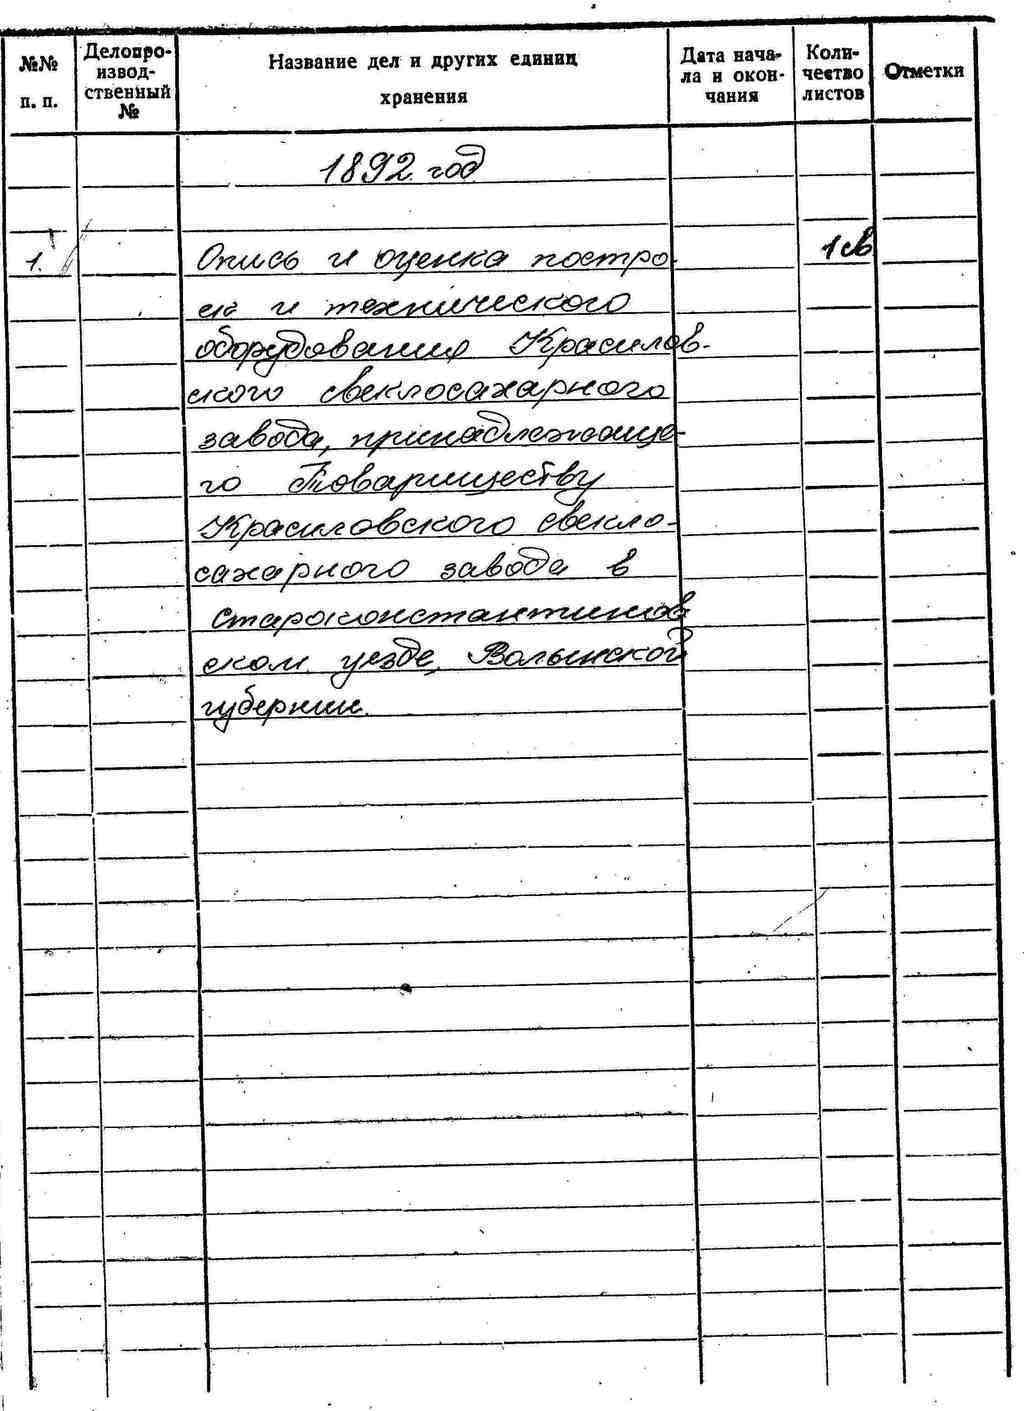 №№ п. п.
Делопро-
извод-
ственный
№
Название дел и других единиц
хранения
Дата нача-
ла и окон-
чания
Коли-
чество
листов
Отметки
1892 год
1. Опись и оценка постро 1 св
ек и технического
оборудования Красилов-
ского свеклосахарного
завода, принадлежаще-
го Товариществу
Красиловского свекло-
сахарного завода в
Староконстантинов
ском уезде, Волынской
губернии.